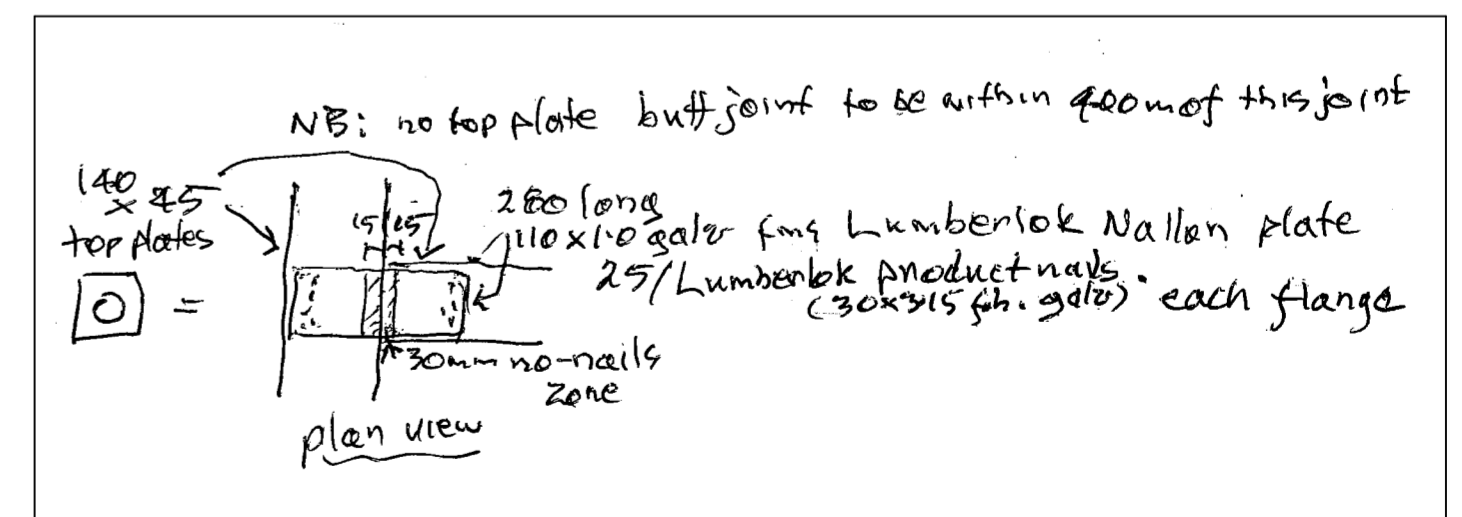 NB: no top plate butt joint to be within 400m of this joint
140 x 45
top plates
15 15
280 long
110x1.0 galv fmg Lumberlok Nailon plate
25/Lumberlok product nails.
(30x3.15 f.h. galv) each flange
O =
30mm no-nails
zone
plan view